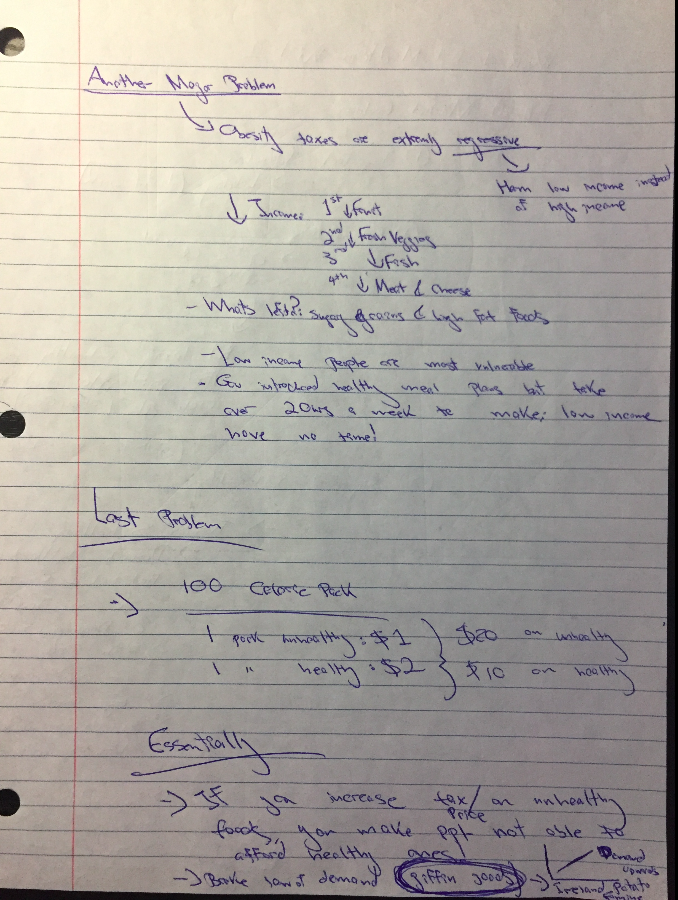 Another Major Problem
Obesity taxes are extremly regressive
Harm low income instead
of high income
↓ Income: 1st ↓ Fruit
2nd ↓ Fresh Veggies
3rd ↓ Fish
4th ↓ Meat & Cheese
- Whats left?: Sugary grains & high fat foods
- Low income people are most vulnerable
- Gov introduced healthy meal plans but take
over 20hrs a week to make; low income
have no time!
Last Problem
→ 100 Calorie Pack
1 pack unhealthy: $1 } $20 on unhealthy
1 " healthy: $2 } $10 on healthy
Essentially
→ If you increase tax/ on unhealthy
price
foods, you make ppl not able to
afford healthy ones
→ Broke law of demand giffin goods → Demand
upwards
Ireland potato
famine